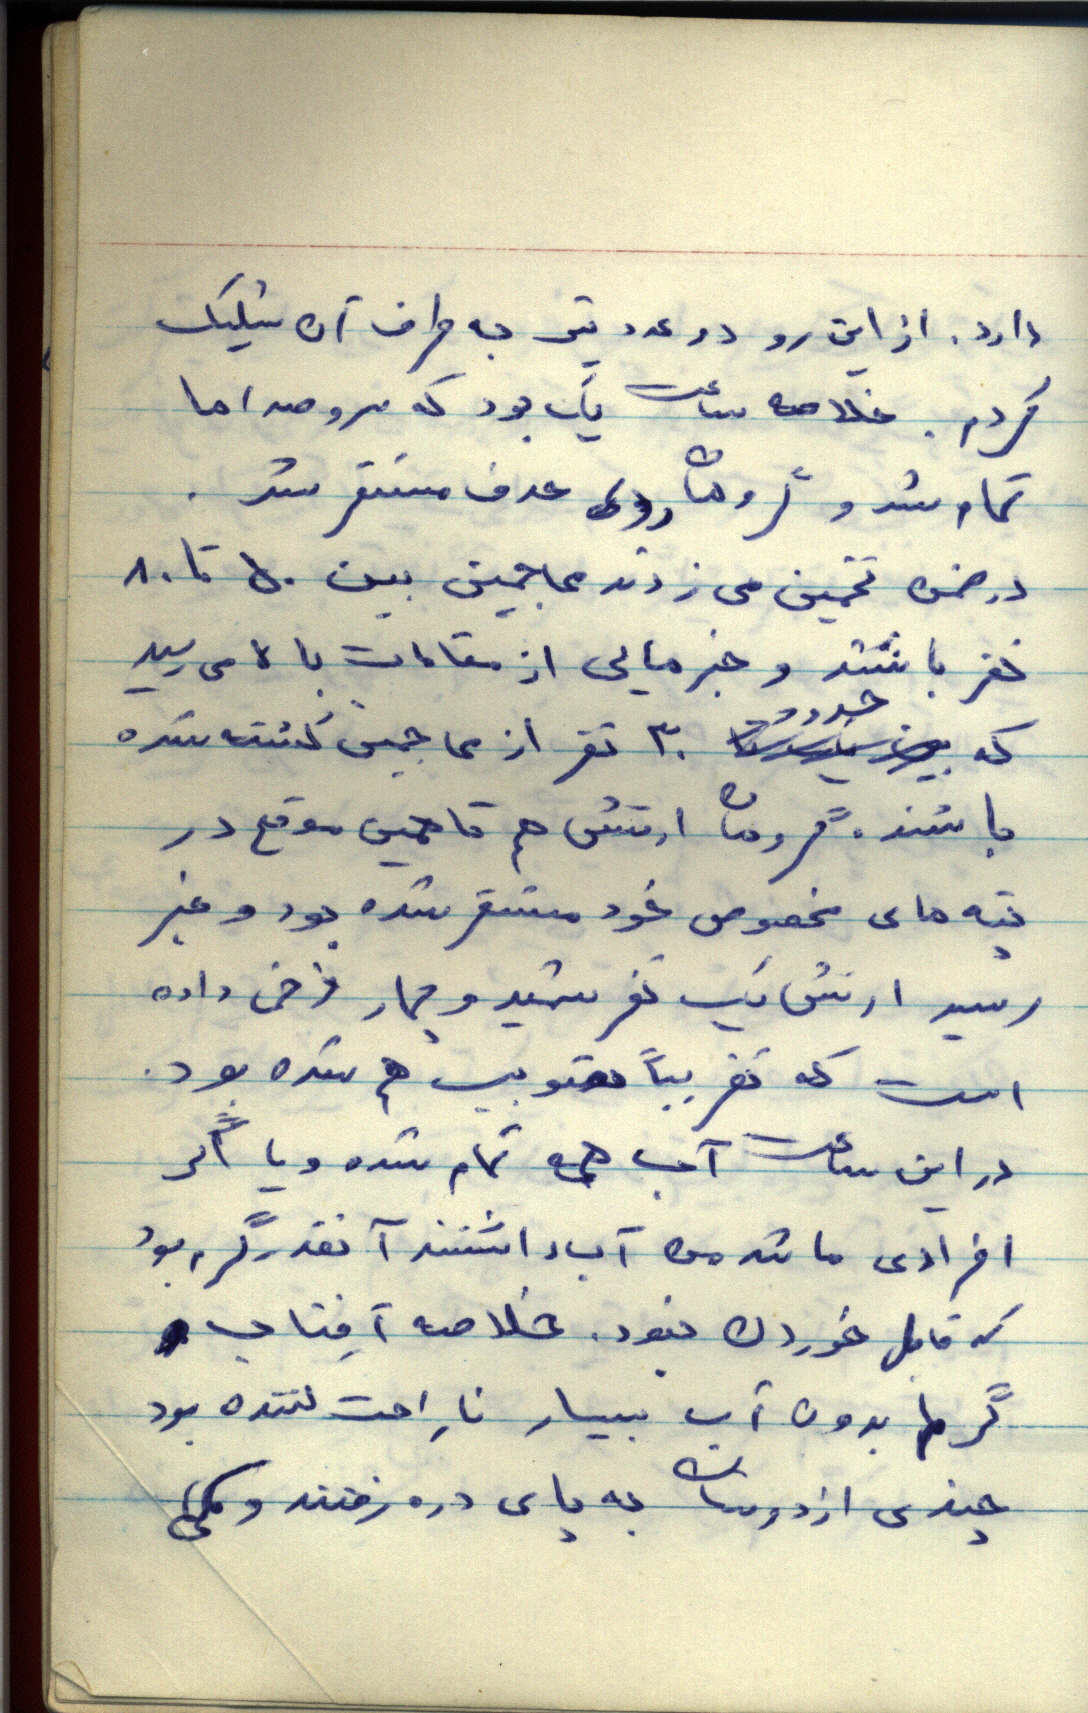 دارد. از این رو دو عدد تیر به طرف آن شلیک
کردم. خلاصه ساعت یک بود که سر و صداها
تمام شد و گروهان روی هدف مستقر شد.
در ضمن تخمین می زدند مهاجمین بین ۵۰ تا ۸۰
نفر باشند و خبرهایی از مقامات بالا می رسید
که حدود ۳۰ نفر از مهاجمین کشته شده
باشند. گروهان ارتش هم تا همین موقع در
تپه های مخصوص خود مستقر شده بود و خبر
رسید ارتش یک نفر شهید و چهار زخمی داده
است که تقریباً تصویب هم شده بود.
در این ساعت آب همه تمام شده و یا اگر
افرادی مانند من آب داشتند آنقدر گرم بود
که قابل خوردن نبود. خلاصه آفتاب و
گرما بدون آب بسیار ناراحت کننده بود
چندی از دوستان به پای دره رفتند و